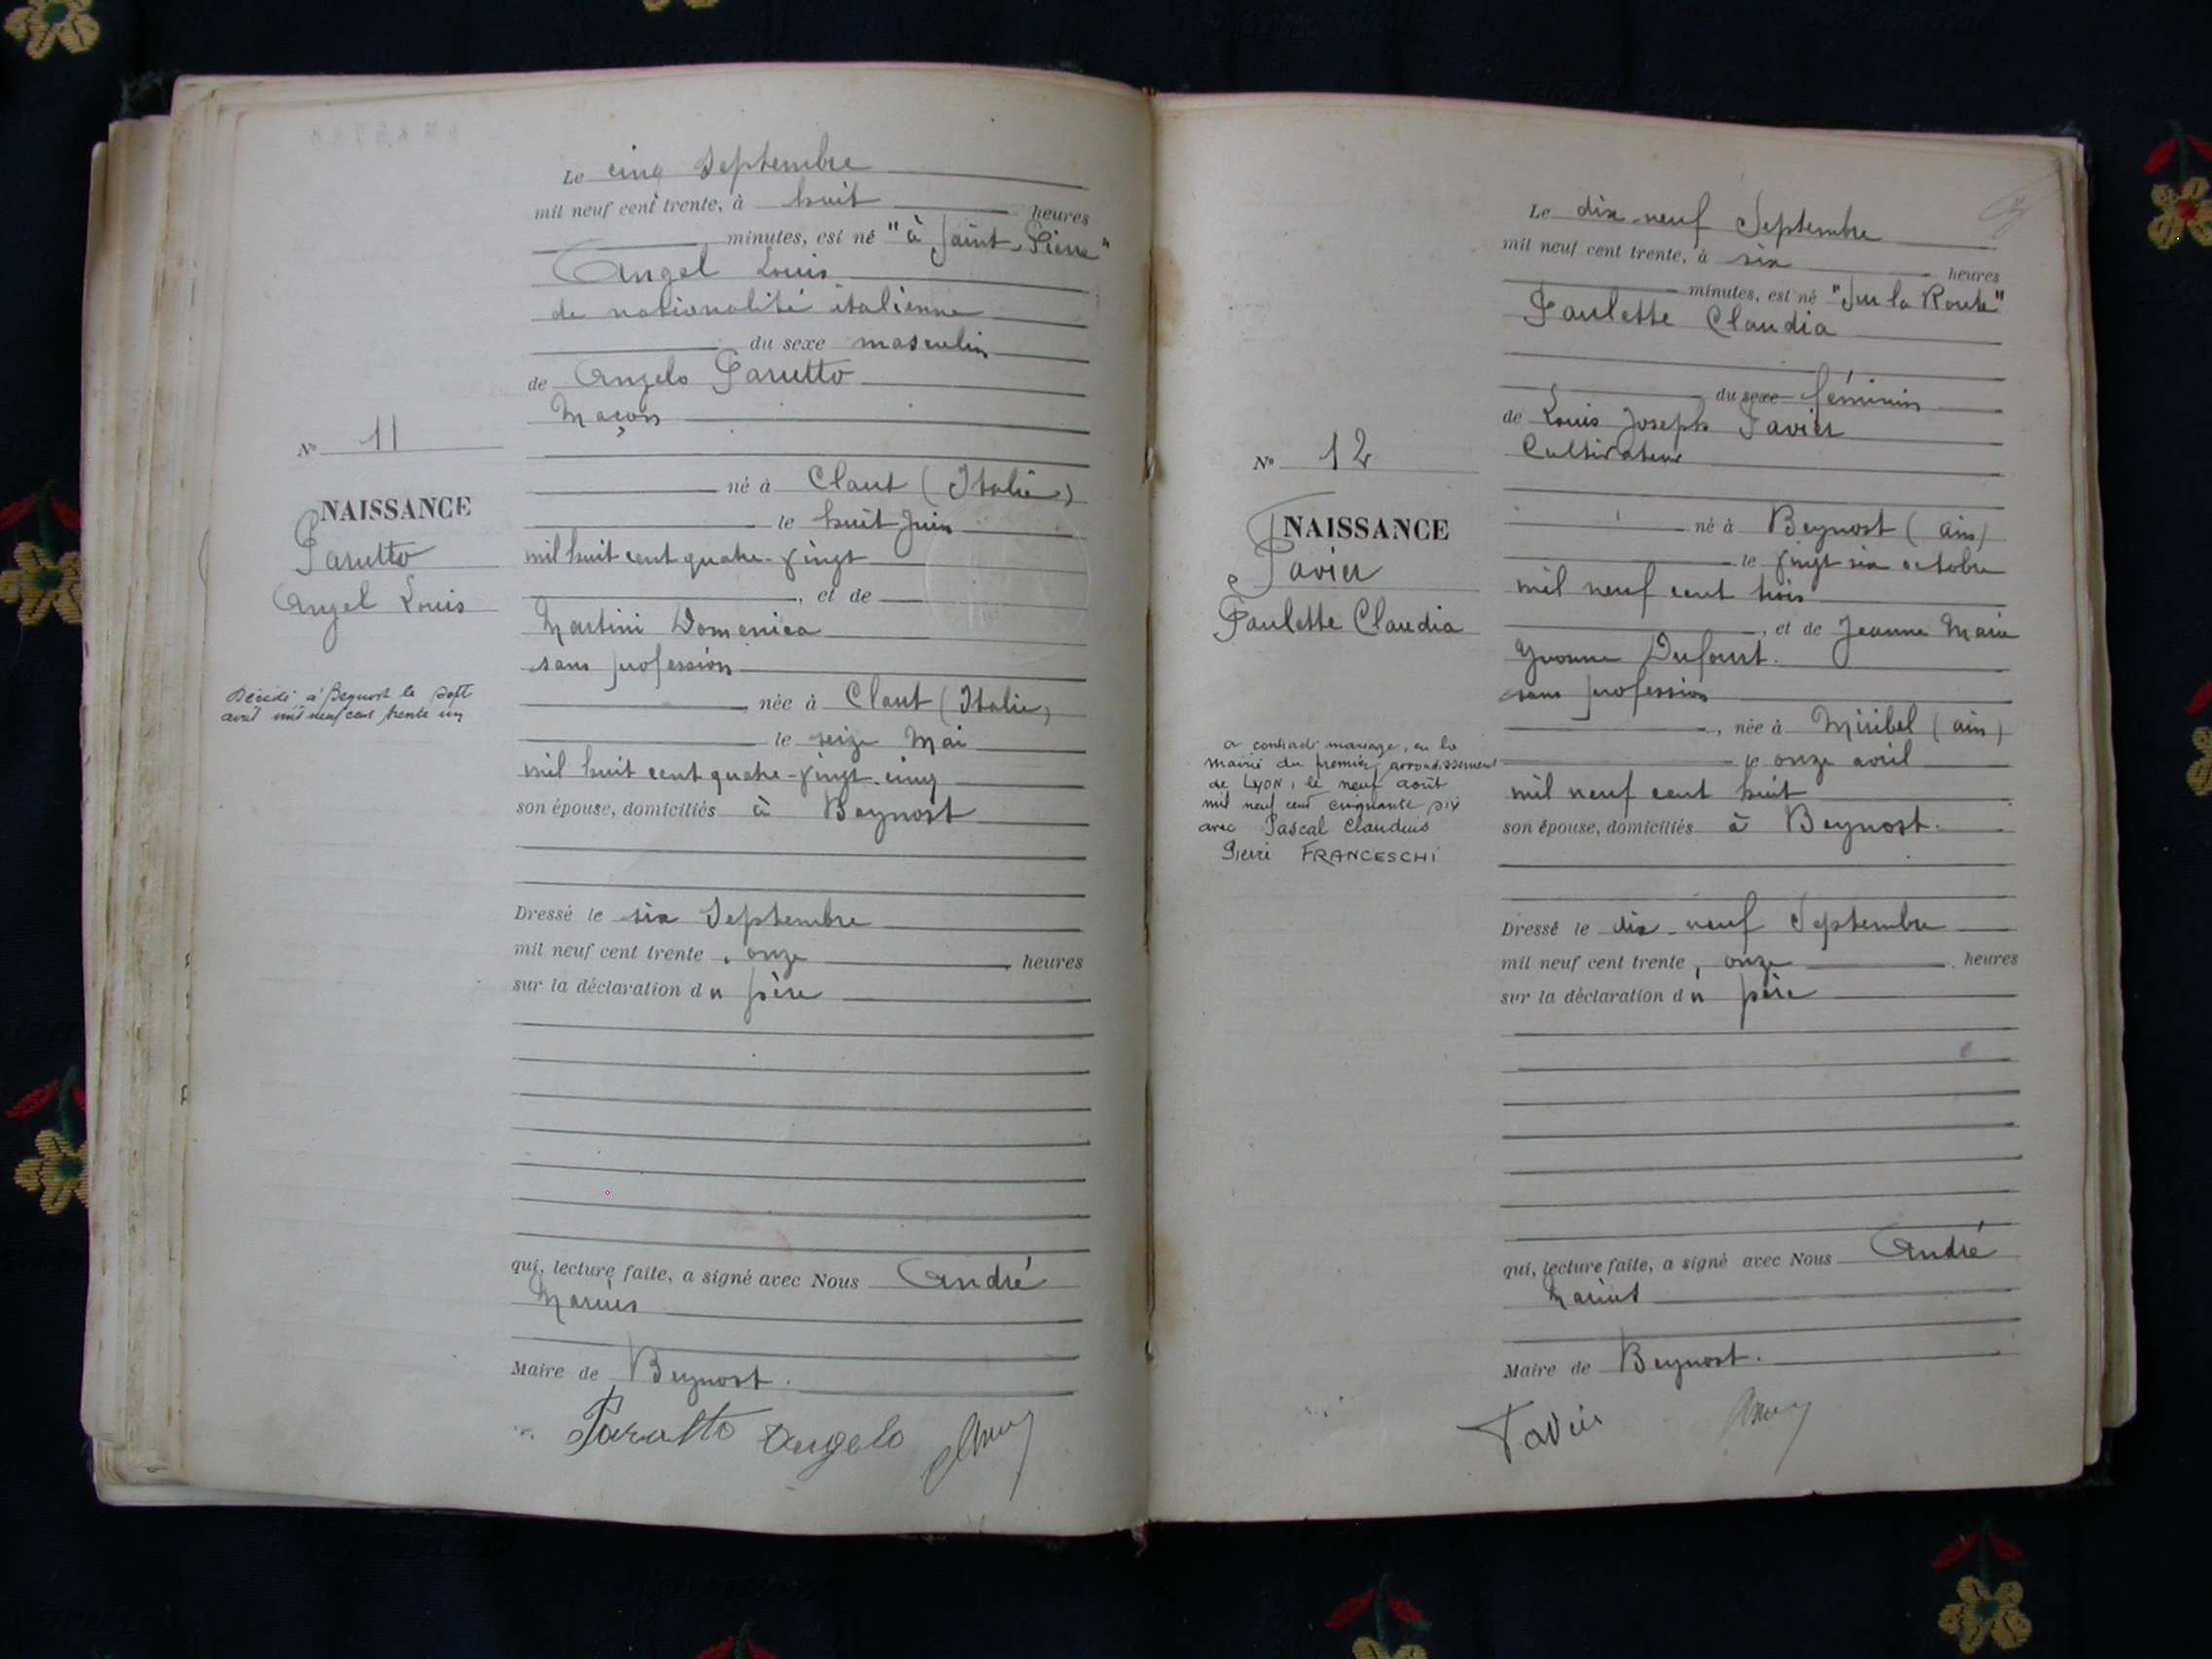 Le cinq Septembre
mil neuf cent trente, à huit heures
minutes, est né "à Saint-Pierre"
Angel Louis
de nationalité italienne
du sexe masculin
de Angelo Parutto
Maçon
né à Claut (Italie)
le huit Juin
mil huit cent quatre-vingt
, et de
Martini Domenica
sans profession
, née à Claut (Italie)
le seize Mai
mil huit cent quatre-vingt-cinq
son épouse, domiciliés à Beynost
Dressé le six Septembre
mil neuf cent trente, onze heures
sur la déclaration du père
qui, lecture faite, a signé avec Nous André
Marius
Maire de Beynost.
Parutto Angelo
N° 11
NAISSANCE
Parutto
Angel Louis
Décédé à Beynost le sept
avril mil neuf cent trente un
Le dix-neuf Septembre
mil neuf cent trente, à six heures
minutes, est né "Sur la Route"
Paulette Claudia
du sexe féminin
de Louis Joseph Favier
Cultivateur
né à Beynost (ain)
le vingt six octobre
mil neuf cent trois
, et de Jeanne Marie
Yvonne Dufourt.
sans profession
, née à Miribel (ain)
le onze avril
mil neuf cent huit
son épouse, domiciliés à Beynost.
Dressé le dix-neuf Septembre
mil neuf cent trente, onze heures
sur la déclaration du père
qui, lecture faite, a signé avec Nous André
Marius
Maire de Beynost.
Favier
N° 12
NAISSANCE
Favier
Paulette Claudia
a contracté mariage, en la
mairie du premier arrondissement
de LYON, le neuf août
mil neuf cent cinquante six
avec Pascal Claudius
Pierre FRANCESCHI